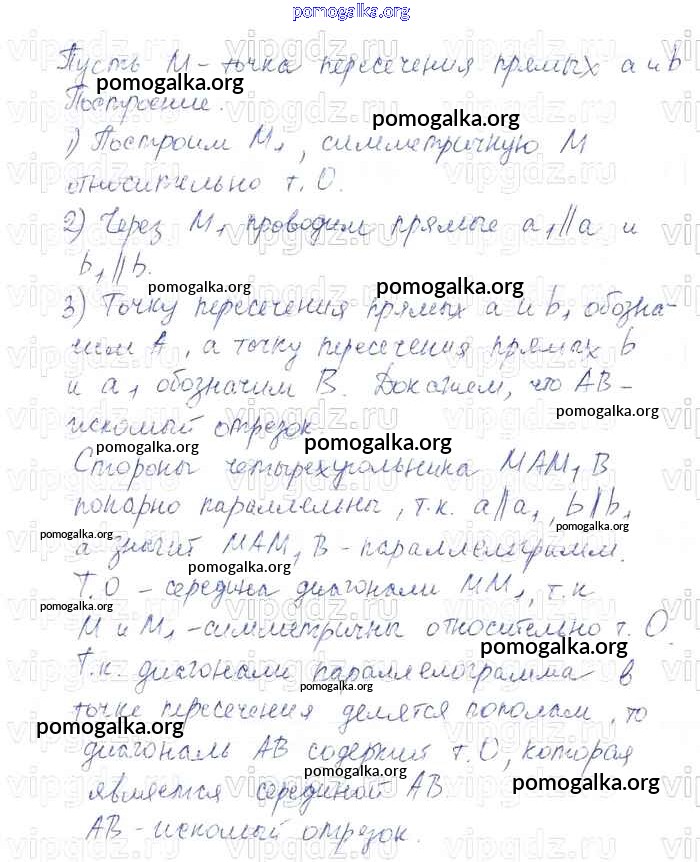 pomogalka.org
Пусть М - точка пересечения прямых а и b
pomogalka.org
Построение.
pomogalka.org
1) Построим М₁, симметричную М
относительно т. О.
2) Через М₁ проводим прямые а₁||а и
b₁||b.
pomogalka.org
pomogalka.org
3) Точку пересечения прямых а и b₁ обозна-
чим А, а точку пересечения прямых b
и а₁ обозначим В. Докажем, что АВ -
pomogalka.org
искомый отрезок.
pomogalka.org
pomogalka.org
Стороны четырехугольника МАМ₁В
попарно параллельны, т.к. а||а₁, b||b₁,
pomogalka.org
pomogalka.org
а значит МАМ₁В - параллелограмм.
pomogalka.org
Т.О - середина диагонали ММ₁, т.к
pomogalka.org
М и М₁ - симметричны относительно т. О.
pomogalka.org
Т.к. диагонали параллелограмма в
pomogalka.org
точке пересечения делятся пополам, то
pomogalka.org
диагональ АВ содержит т.О, которая
pomogalka.org
является серединой АВ
pomogalka.org
pomogalka.org
АВ - искомый отрезок.